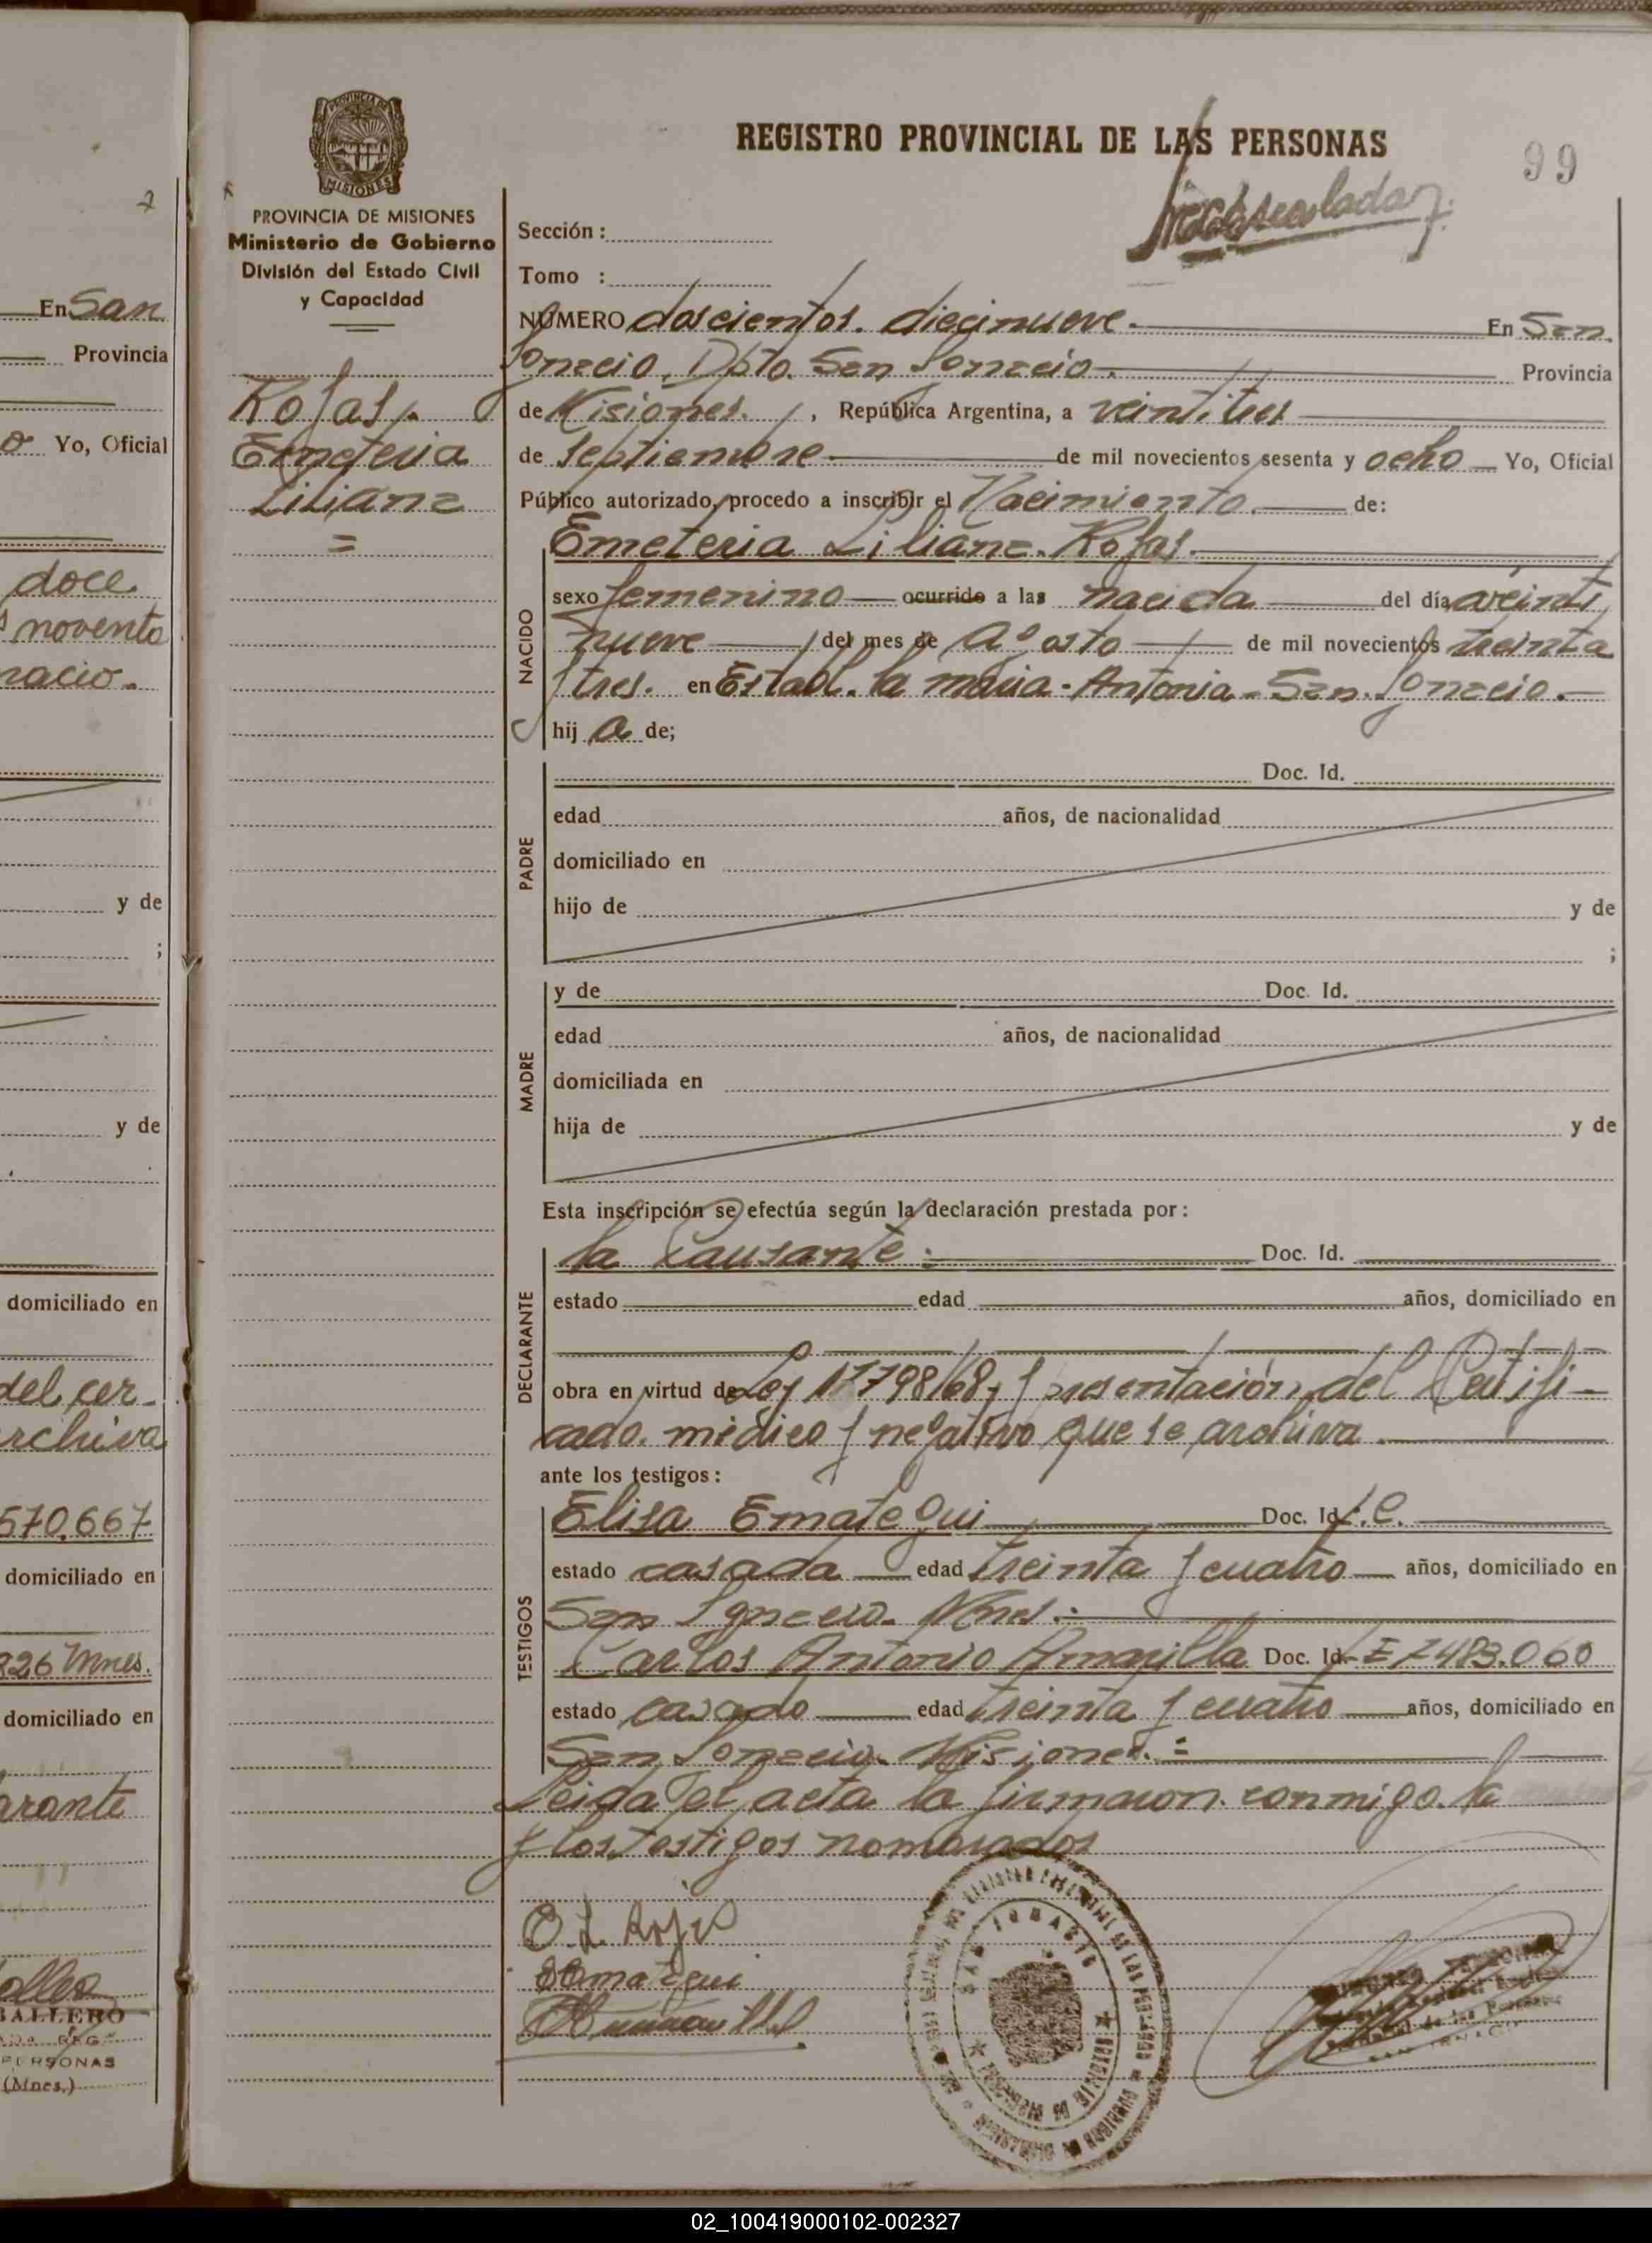 REGISTRO PROVINCIAL DE LAS PERSONAS
99
PROVINCIA DE
MISIONES
PROVINCIA DE MISIONES
Ministerio de Gobierno
División del Estado Civil
y Capacidad
Rojas.
Emeteria
Liliana
=
Sección :
Tomo :
NÚMERO doscientos diecinueve. En San
Ignacio, Dpto. San Ignacio. Provincia
de Misiones. , República Argentina, a veintitres
de septiembre de mil novecientos sesenta y ocho Yo, Oficial
Público autorizado, procedo a inscribir el Nacimiento. de:
Emeteria Liliana Rojas.
NACIDO
sexo femenino ocurrido a las nacida del día veinti
nueve del mes de Agosto de mil novecientos treinta
y tres. en Establ. la maria - Antonia - San Ignacio.
hij a de;
PADRE
Doc. Id.
edad años, de nacionalidad
domiciliado en
hijo de y de
;
MADRE
y de Doc. Id.
edad años, de nacionalidad
domiciliada en
hija de y de
Esta inscripción se efectúa según la declaración prestada por:
DECLARANTE
la Causante: Doc. Id.
estado edad años, domiciliado en
obra en virtud de Ley 17798/68, y presentación del Certifi-
cado. médico y negativo que se archiva.
ante los testigos:
TESTIGOS
Elisa Emategui Doc. Id. L.C.
estado casada edad treinta y cuatro años, domiciliado en
San Ignacio. Mnes.
Carlos Antonio Amarilla Doc. Id. L-E 7483.060
estado casado edad treinta y cuatro años, domiciliado en
San Ignacio. Misiones. =
Leida el acta la firmaron conmigo. la
y los testigos nombrados
E. L. Rojas
EEmategui
SAN IGNACIO
En San
Provincia
o Yo, Oficial
doce
noventa
nacio.
y de
;
y de
domiciliado en
del cer-
archiva
570.667
domiciliado en
826 Mnes.
domiciliado en
arante
BALLERO
PERSONAS
(Mnes.)
02_100419000102-002327